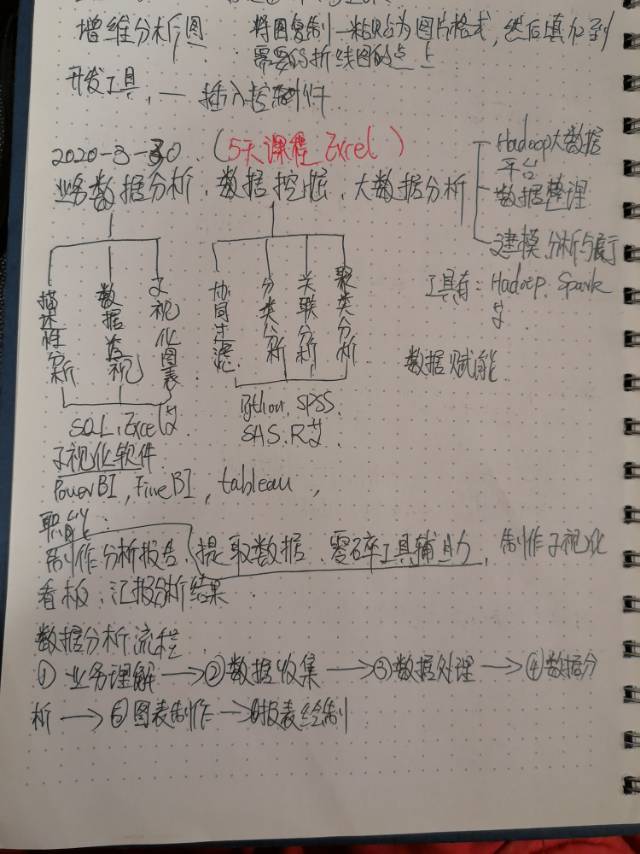 增维分析图 将图复制—粘贴为图片格式，然后填加到
需要的折线图的点上
开发工具，— 插入控制件
2020-3-30.（5天课程 Excel）
业务数据分析、数据挖掘、大数据分析
Hadoop大数据
平台
数据整理
建模、分析与展示
工具有：Hadoop、Spark
等
描述性分析
数据监视
可视化图表
协同过滤
分类分析
关联分析
聚类分析
数据赋能
SQL、Excel等
Python、SPSS、
SAS、R等
可视化软件
PowerBI，FineBI，tableau，
职能
制作分析报告、提取数据、零碎工具辅助，制作可视化
看板、汇报分析结果
数据分析流程
① 业务理解 → ②数据收集 → ③数据处理 → ④数据分
析 → ⑤图表制作 → ⑥报表绘制